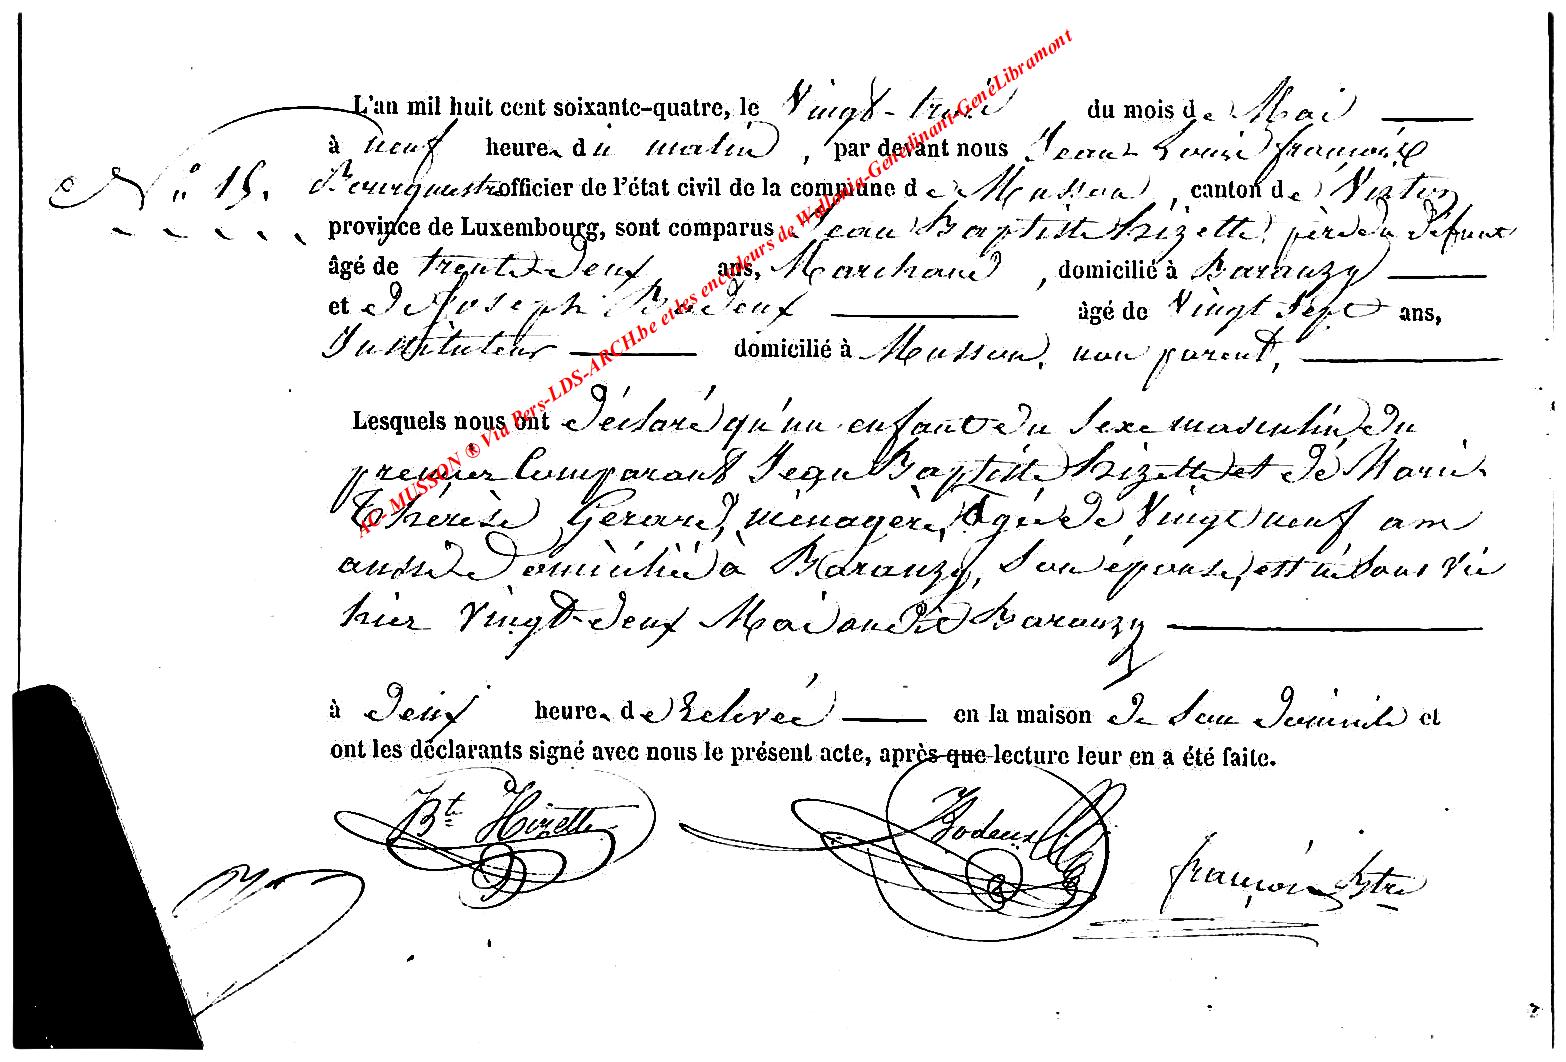 L'an mil huit cent soixante-quatre, le Vingt-trois du mois de Mai
à neuf heures du matin, par devant nous Jean Louis François
N.° 15. Bourgmestre officier de l'état civil de la commune de Musson, canton de Virton
province de Luxembourg, sont comparus Jean Baptiste Hizette, père du défunt
âgé de trente-deux ans, Marchand, domicilié à Baranzy
et de Joseph Bodeux âgé de Vingt sept ans,
Instituteur domicilié à Musson, non parent,
Lesquels nous ont déclaré qu'un enfant du sexe masculin, du
premier Comparant Jean Baptiste Hizette et de Marie
Thérèse Gérard, ménagère, âgée de Vingt neuf ans
aussi domiciliée à Baranzy, son épouse, est né sans vie
hier vingt-deux Mai audit Baranzy
à deux heures de relevée en la maison de son domicile et
ont les déclarants signé avec nous le présent acte, après que lecture leur en a été faite.
Bte Hizette Bodeux François Bstre
AC- MUSSON ® Via Pers-LDS-ARCH.be et les encodeurs de Wallonia-Genedinant-GeneLibramont